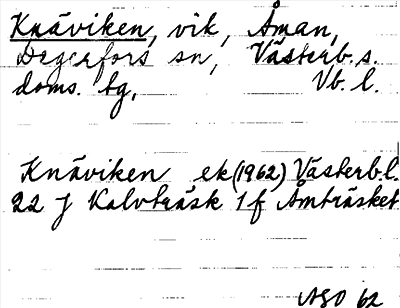 Knäviken, vik, Åman,
Degerfors sn, Västerb. s.
doms. tg, Vb. l.
Knäviken ek (1962) Västerb. l.
22 J Kalvträsk 1 f Åmträsket
ASO 62